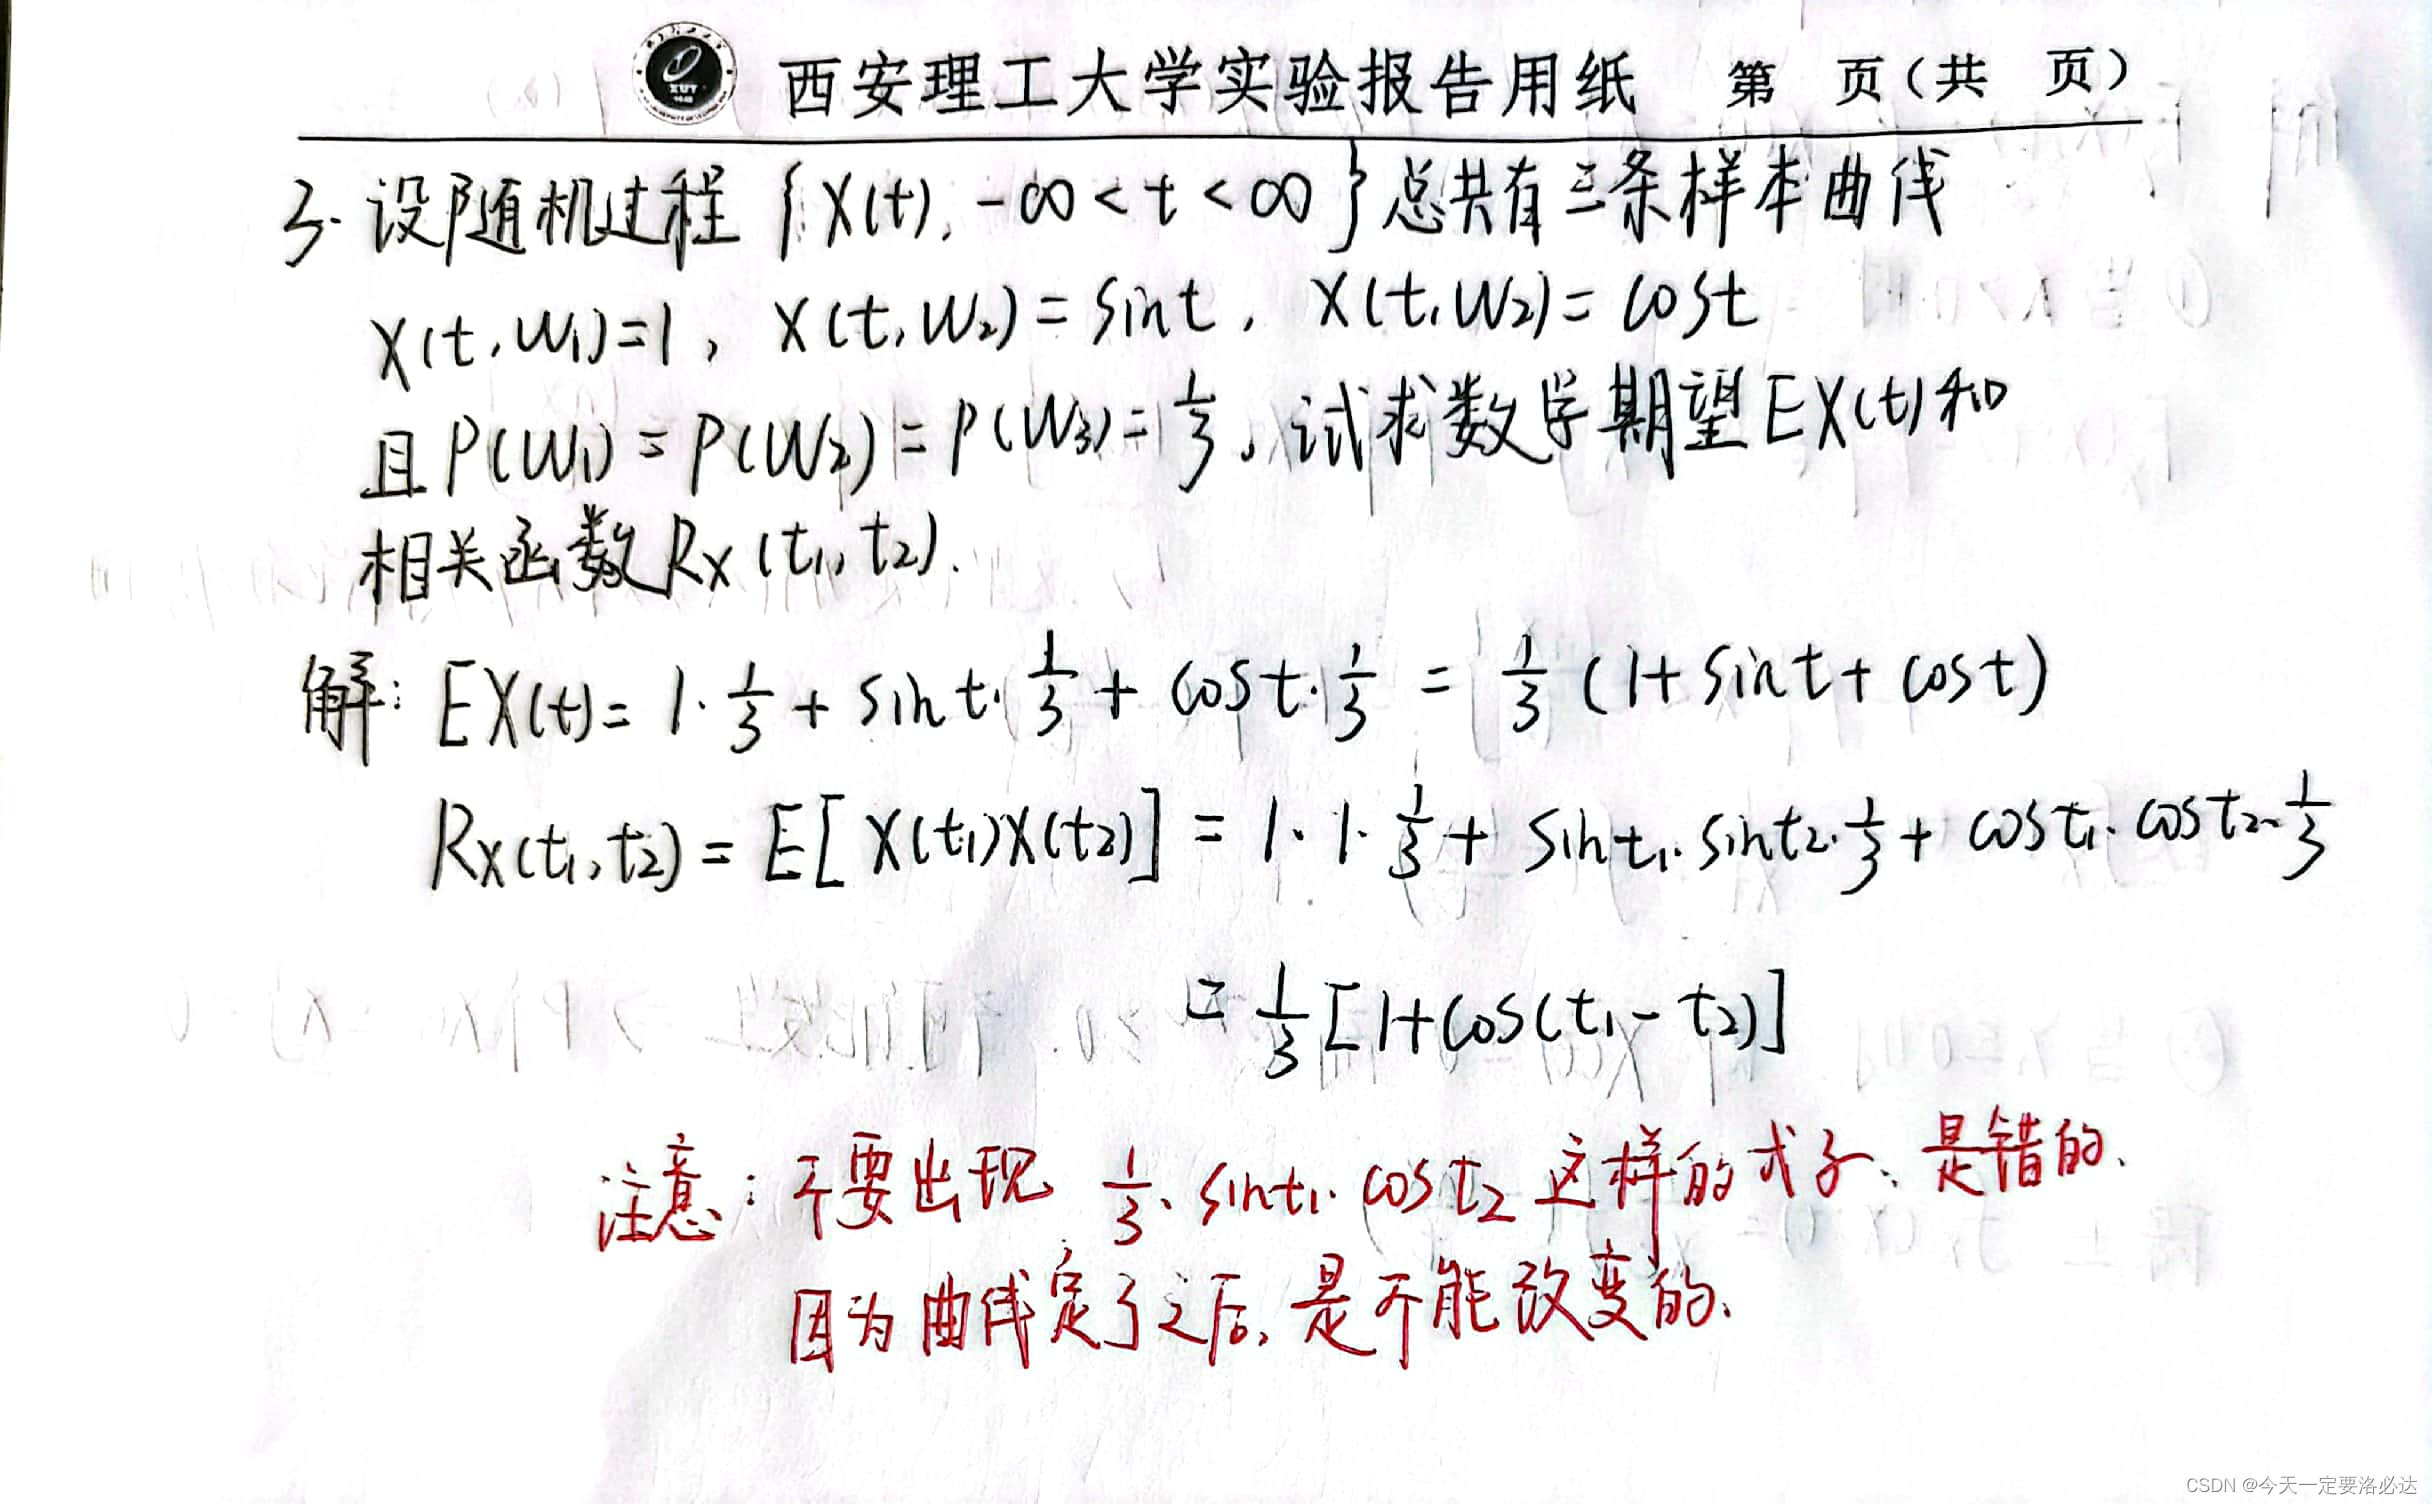 西安理工大学实验报告用纸 第 页(共 页)
3. 设随机过程 {X(t), -∞ < t < ∞} 总共有三条样本曲线
X(t, W₁)=1, X(t, W₂)=sint, X(t, W₂)=cost
且P(W₁)=P(W₂)=P(W₃)=1/3, 试求数学期望EX(t)和
相关函数Rx(t₁, t₂).
解: EX(t)= 1·1/3 + sint·1/3 + cost·1/3 = 1/3 (1+sint+cost)
Rx(t₁, t₂) = E[X(t₁)X(t₂)] = 1·1·1/3 + sint₁·sint₂·1/3 + cost₁·cost₂·1/3
= 1/3 [1+cos(t₁-t₂)]
注意: 不要出现 1/3·sint₁·cost₂ 这样的式子、是错的、
因为曲线定了之后, 是不能改变的、
CSDN @今天一定要洛必达